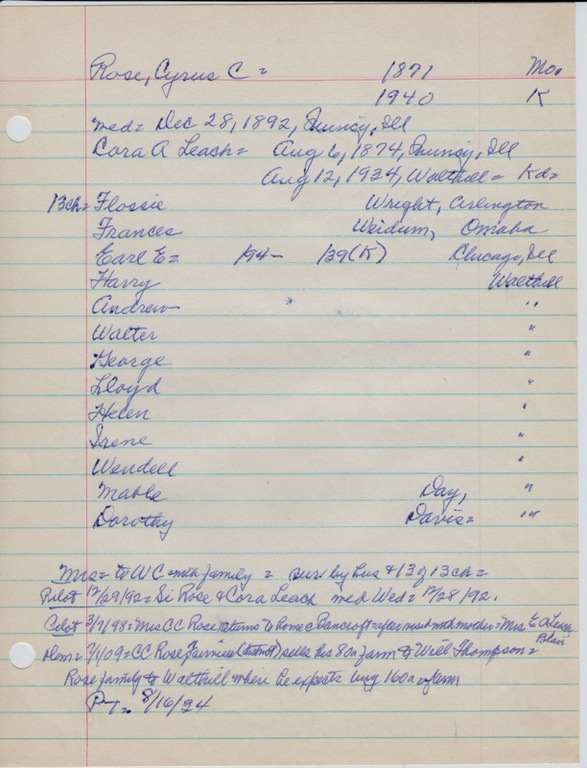 Rose, Cyrus C = 1871 Mo.
1940 K
med= Dec 28, 1892, Quincy, Ill
Cora A Leach= Aug 6, 1874, Quincy, Ill
Aug 12, 1934, Walthill= Kd=
13ch= Flossie Wright, Arlington
Frances Weidum, Omaha
Earl E= 194- 139(K) Chicago, Ill
Harry Walthill
Andrew "
Walter "
George "
Lloyd "
Helen "
Irene "
Wendell "
Mable Day, "
Dorothy Davis= "
Mrs= to WC= with family = surv by hus & 13 of 13 ch=
Pilot 12/29/92= Si Rose & Cora Leach med Wed= 12/28/92.
Pilot 3/9/98= Mrs CC Rose returns to home Bancroft= after month mother= Mrs E A Leach
Blair
7/1/09= CC Rose Fairview sells his 80a farm to Will Thompson=
Rose family to Walthill where he expects buy 160a
8/16/34